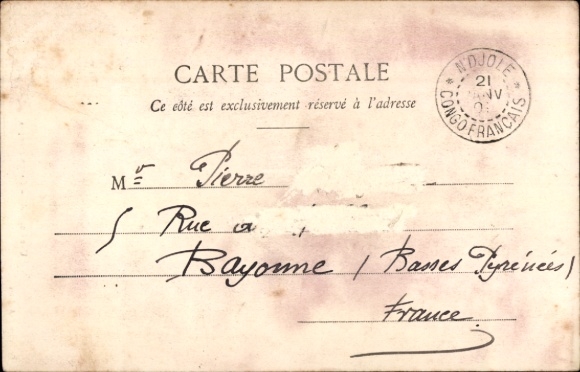 CARTE POSTALE
Ce côté est exclusivement réservé à l'adresse
N'DJOLE
21
CONGO FRANÇAIS
Mr Pierre
Rue
Bayonne (Basses Pyrénées)
France